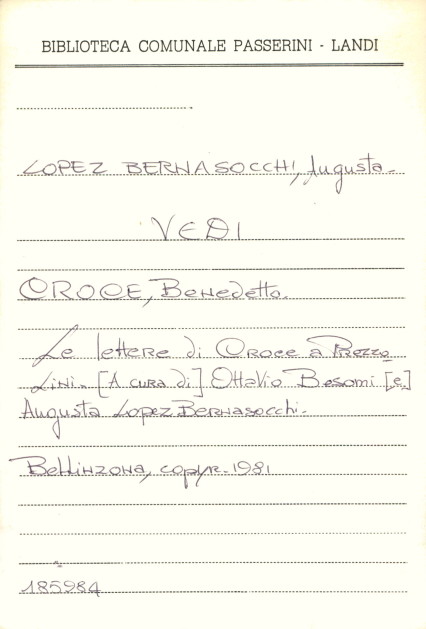 BIBLIOTECA COMUNALE PASSERINI - LANDI
LOPEZ BERNASOCCHI, Augusta.
VEDI
CROCE, Benedetto.
Le lettere di Croce a Prezzo
lini. [A cura di] Ottavio Besomi [e]
Augusta Lopez Bernasocchi.
Bellinzona, copyr. 1981
185984